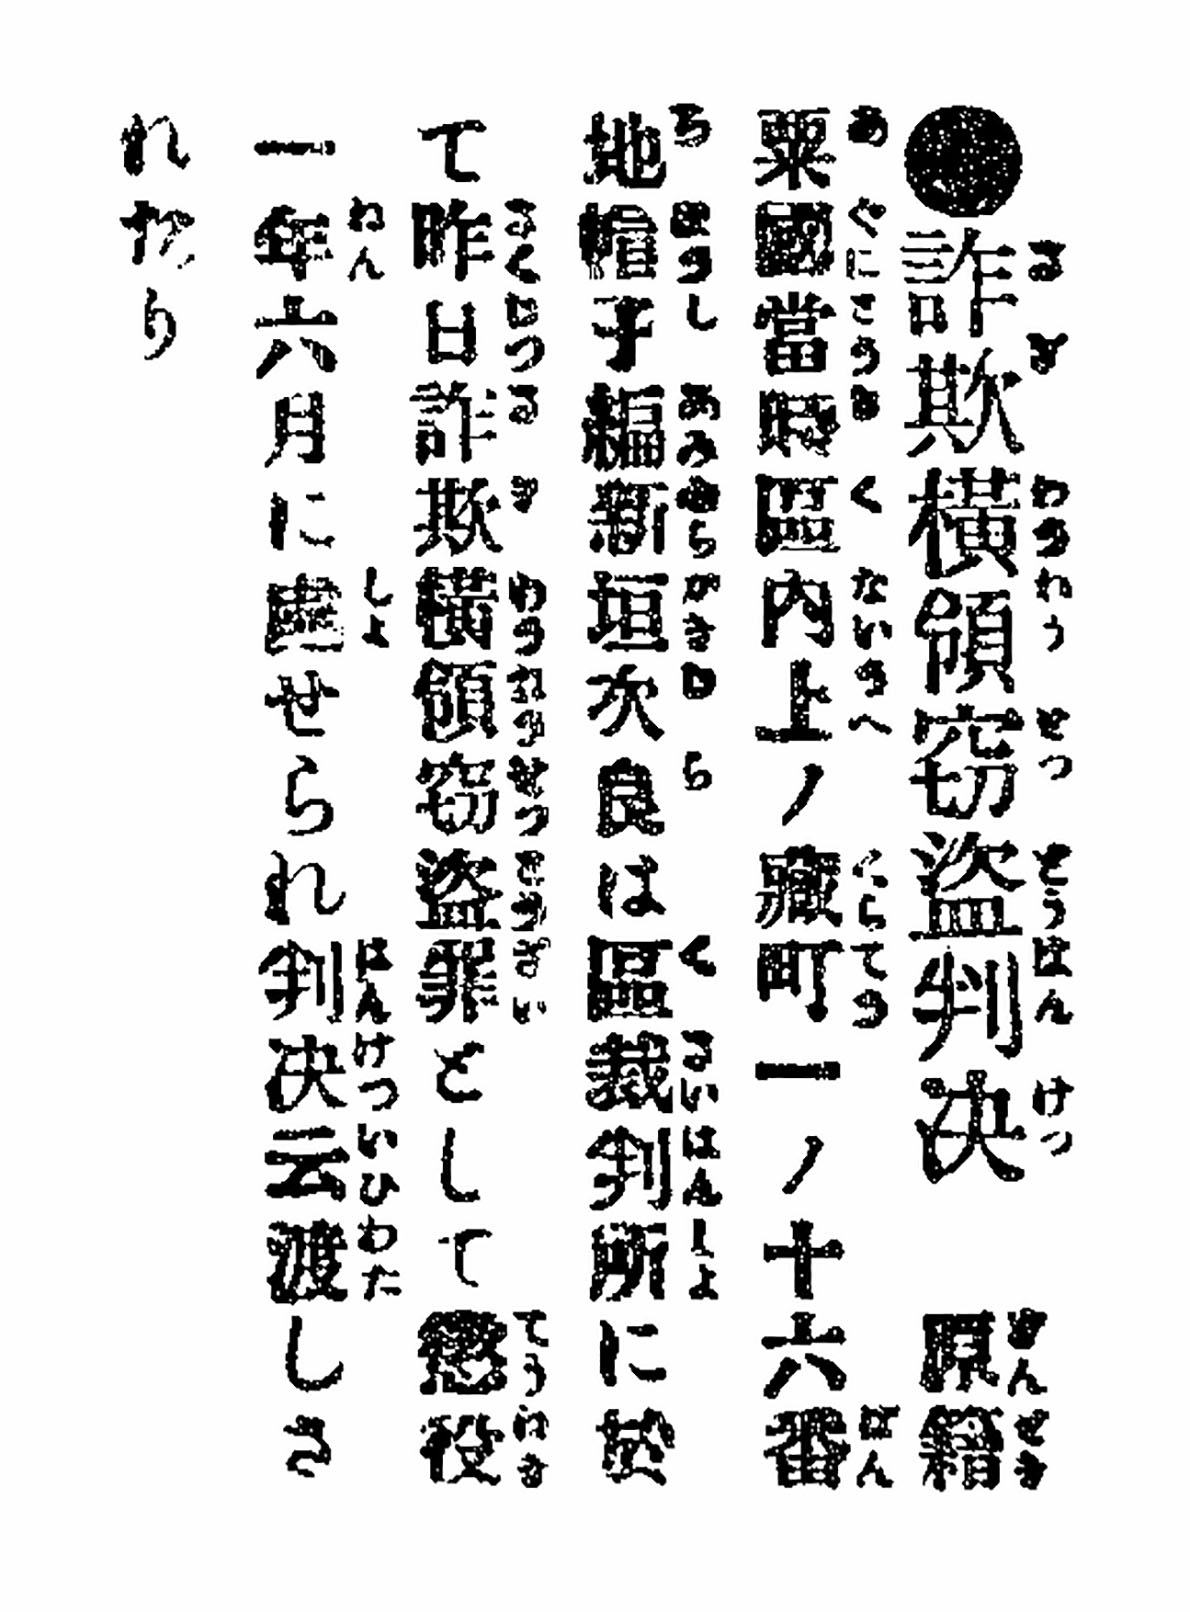 ●詐欺橫領窃盜判决　原籍
粟國當時區內上ノ藏町一ノ十六番
地帽子編新垣次良は區裁判所に於
て昨日詐欺橫領窃盜罪として懲役
一年六月に處せられ判决云渡しさ
れたり